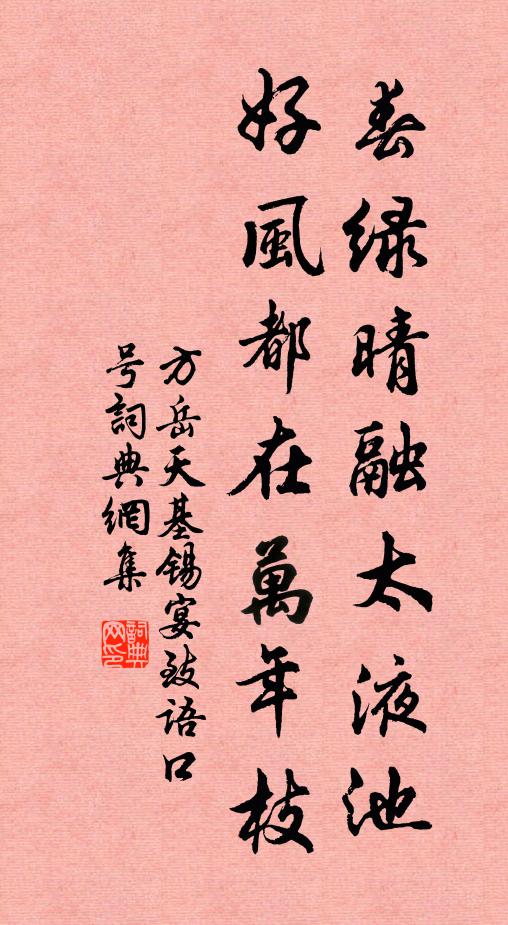 春绿晴融太液池
好風都在萬年枝
方岳天基锡宴致语口
号詞典網集
詞典網印